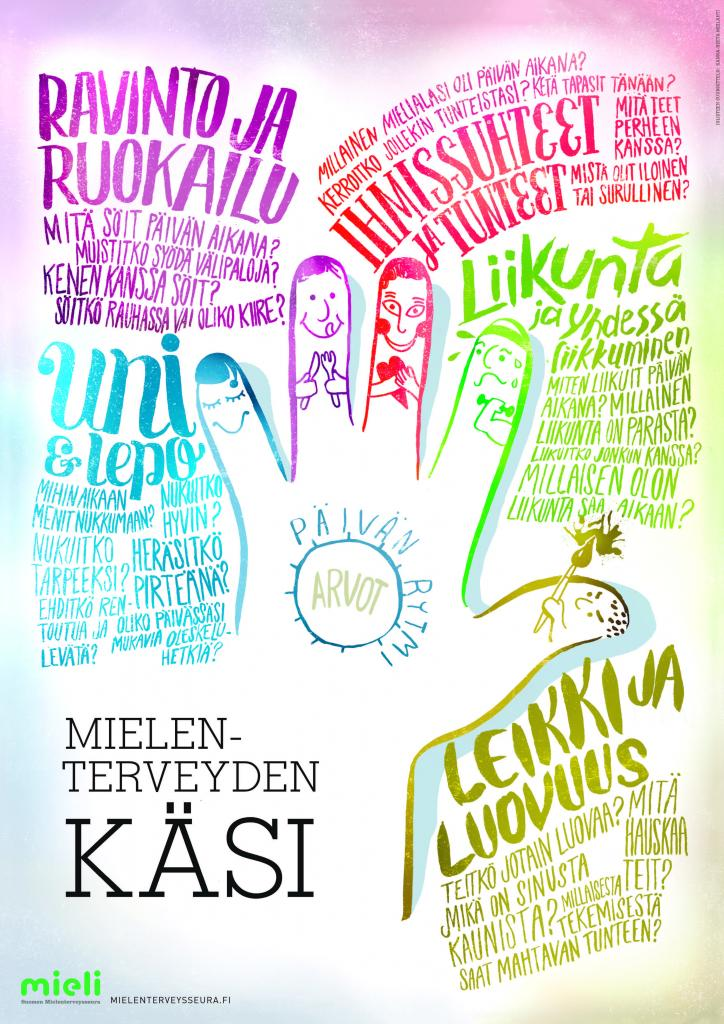 RAVINTO JA
RUOKAILU
MITÄ SÖIT PÄIVÄN AIKANA?
MUISTITKO SYÖDÄ VÄLIPALOJA?
KENEN KANSSA SÖIT?
SÖITKÖ RAUHASSA VAI OLIKO KIIRE?
MILLAINEN MIELIALASI OLI PÄIVÄN AIKANA?
KERROITKO JOLLEKIN TUNTEISTASI? KETÄ TAPASIT TÄNÄÄN?
IHMISSUHTEET
JA TUNTEET
MITÄ TEET
PERHEEN
KANSSA?
MISTÄ OLIT ILOINEN
TAI SURULLINEN?
Liikunta
ja yhdessä
liikkuminen
MITEN LIIKUIT PÄIVÄN
AIKANA? MILLAINEN
LIIKUNTA ON PARASTA?
LIIKUITKO JONKUN KANSSA?
MILLAISEN OLON
LIIKUNTA SAA AIKAAN?
uni
& lepo
MIHIN AIKAAN
MENIT NUKKUMAAN?
NUKUITKO
HYVIN?
NUKUITKO
TARPEEKSI?
HERÄSITKÖ
PIRTEÄNÄ?
EHDITKÖ REN-
TOUTUA JA
LEVÄTÄ?
OLIKO PÄIVÄSSÄSI
MUKAVIA OLESKELU-
HETKIÄ?
PÄIVÄN RYTMI
ARVOT
LEIKKI JA
LUOVUUS
TEITKÖ JOTAIN LUOVAA?
MIKÄ ON SINUSTA
KAUNISTA?
MITÄ
HAUSKAA
TEIT?
MILLAISESTA
TEKEMISESTÄ
SAAT MAHTAVAN TUNTEEN?
MIELEN-
TERVEYDEN
KÄSI
mieli
Suomen Mielenterveysseura
MIELENTERVEYSSEURA.FI